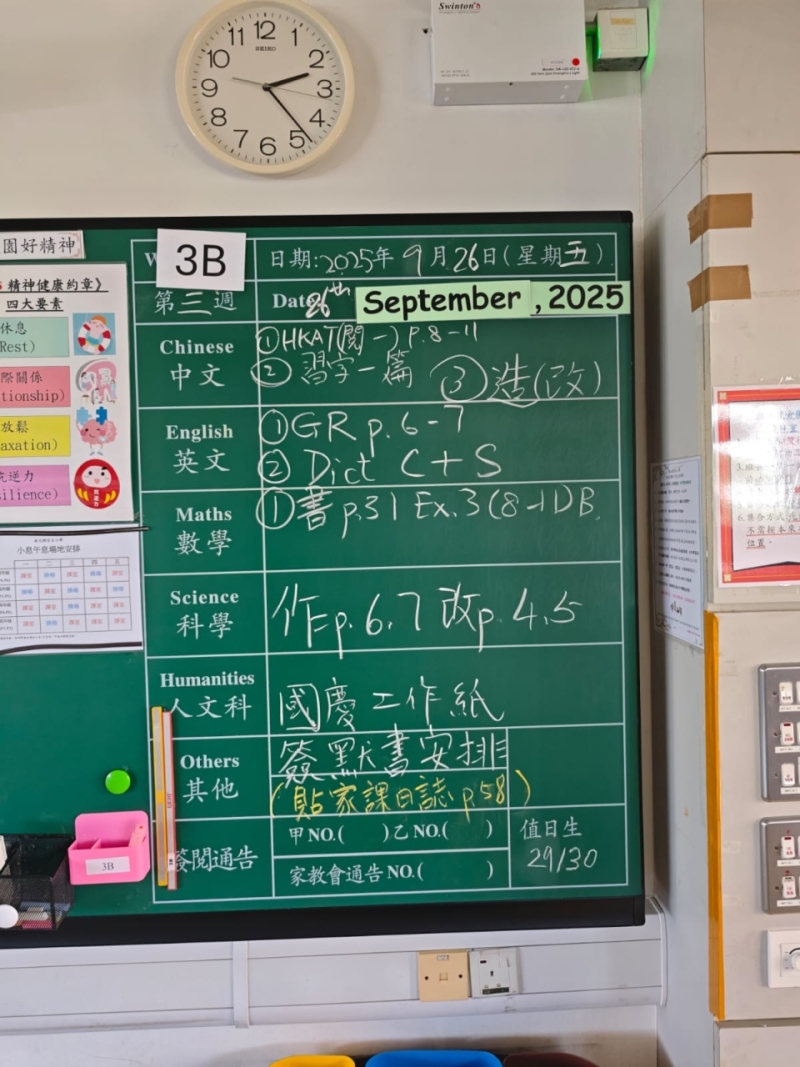 12
1
2
3
4
5
6
7
8
9
10
11
SEIKO
Swinton
園好精神
精神健康約章》
四大要素
休息
Rest)
際關係
tionship)
放鬆
axation)
逆力
silience)
小息午息場地安排
一 二 三 四 五
3B
W
日期:2025年9月26日(星期五)
第三週
Date 26th September , 2025
Chinese
中文
①HKAT(閱一) p.8-11
② 習字一篇 ③造(改)
English
英文
①GR p.6-7
② Dict C+S
Maths
數學
①書 p.31 Ex.3(8-11)B
Science
科學
作p.6,7 改p.4,5
Humanities
人文科
國慶工作紙
Others
其他
簽默書安排
(貼家課日誌 p.58)
簽閱通告
甲NO.( )乙NO.( )
家教會通告NO.( )
值日生
29/30
3B
不需按本來
位置。